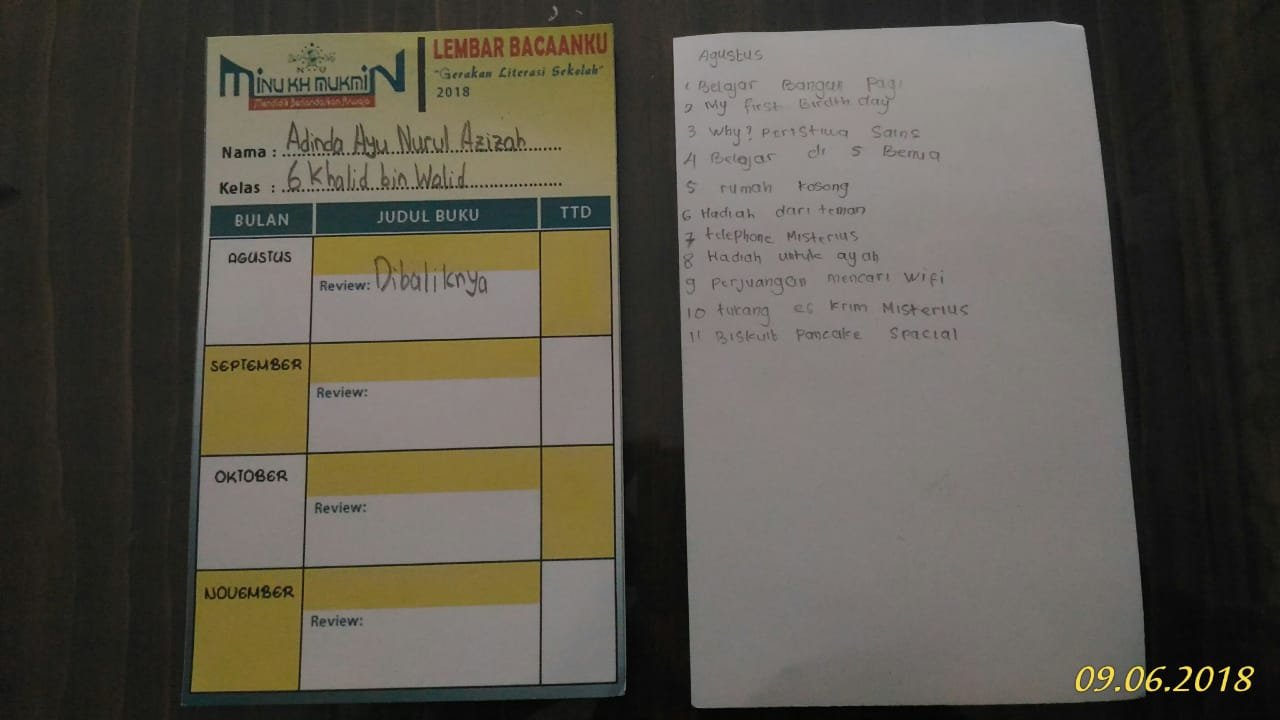 NU
MINU KH MUKMIN
Mendidik Berlandaskan Aswaja
LEMBAR BACAANKU
"Gerakan Literasi Sekolah"
2018
Nama : Adinda Ayu Nurul Azizah
Kelas : 6 Khalid bin Walid
BULAN JUDUL BUKU TTD
AGUSTUS
Review: Dibaliknya
SEPTEMBER
Review:
OKTOBER
Review:
NOVEMBER
Review:
Agustus
1 Belajar Bangun Pagi
2 My first Birdth day
3 Why? Peristiwa Sains
4 Belajar di 5 Benua
5 rumah kosong
6 Hadiah dari teman
7 telephone Misterius
8 Hadiah untuk ayah
9 Perjuangan mencari Wifi
10 tukang es krim Misterius
11 Biskuit Pancake Spacial
09.06.2018